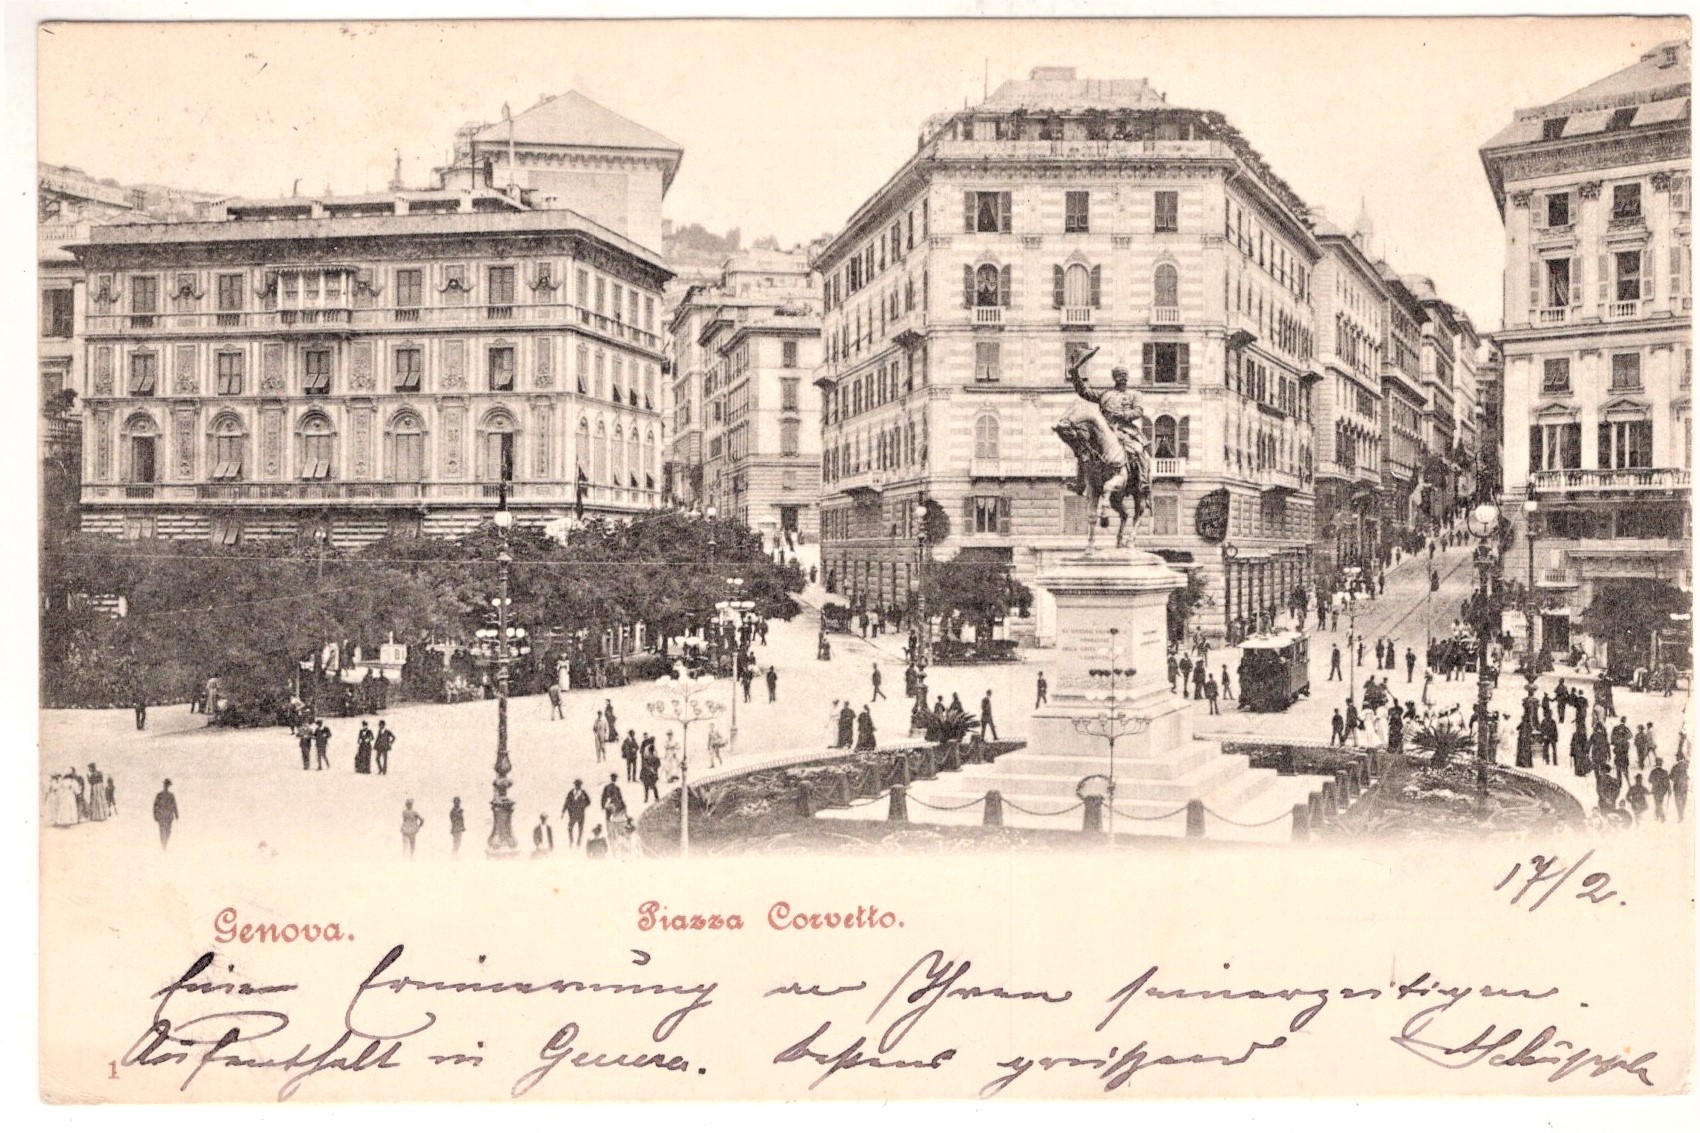 17/2.
Genova. Piazza Corvetto.
Eine Erinnerung an Ihren seinerzeitigen
Aufenthalt in Genova. bestens grüßend
1